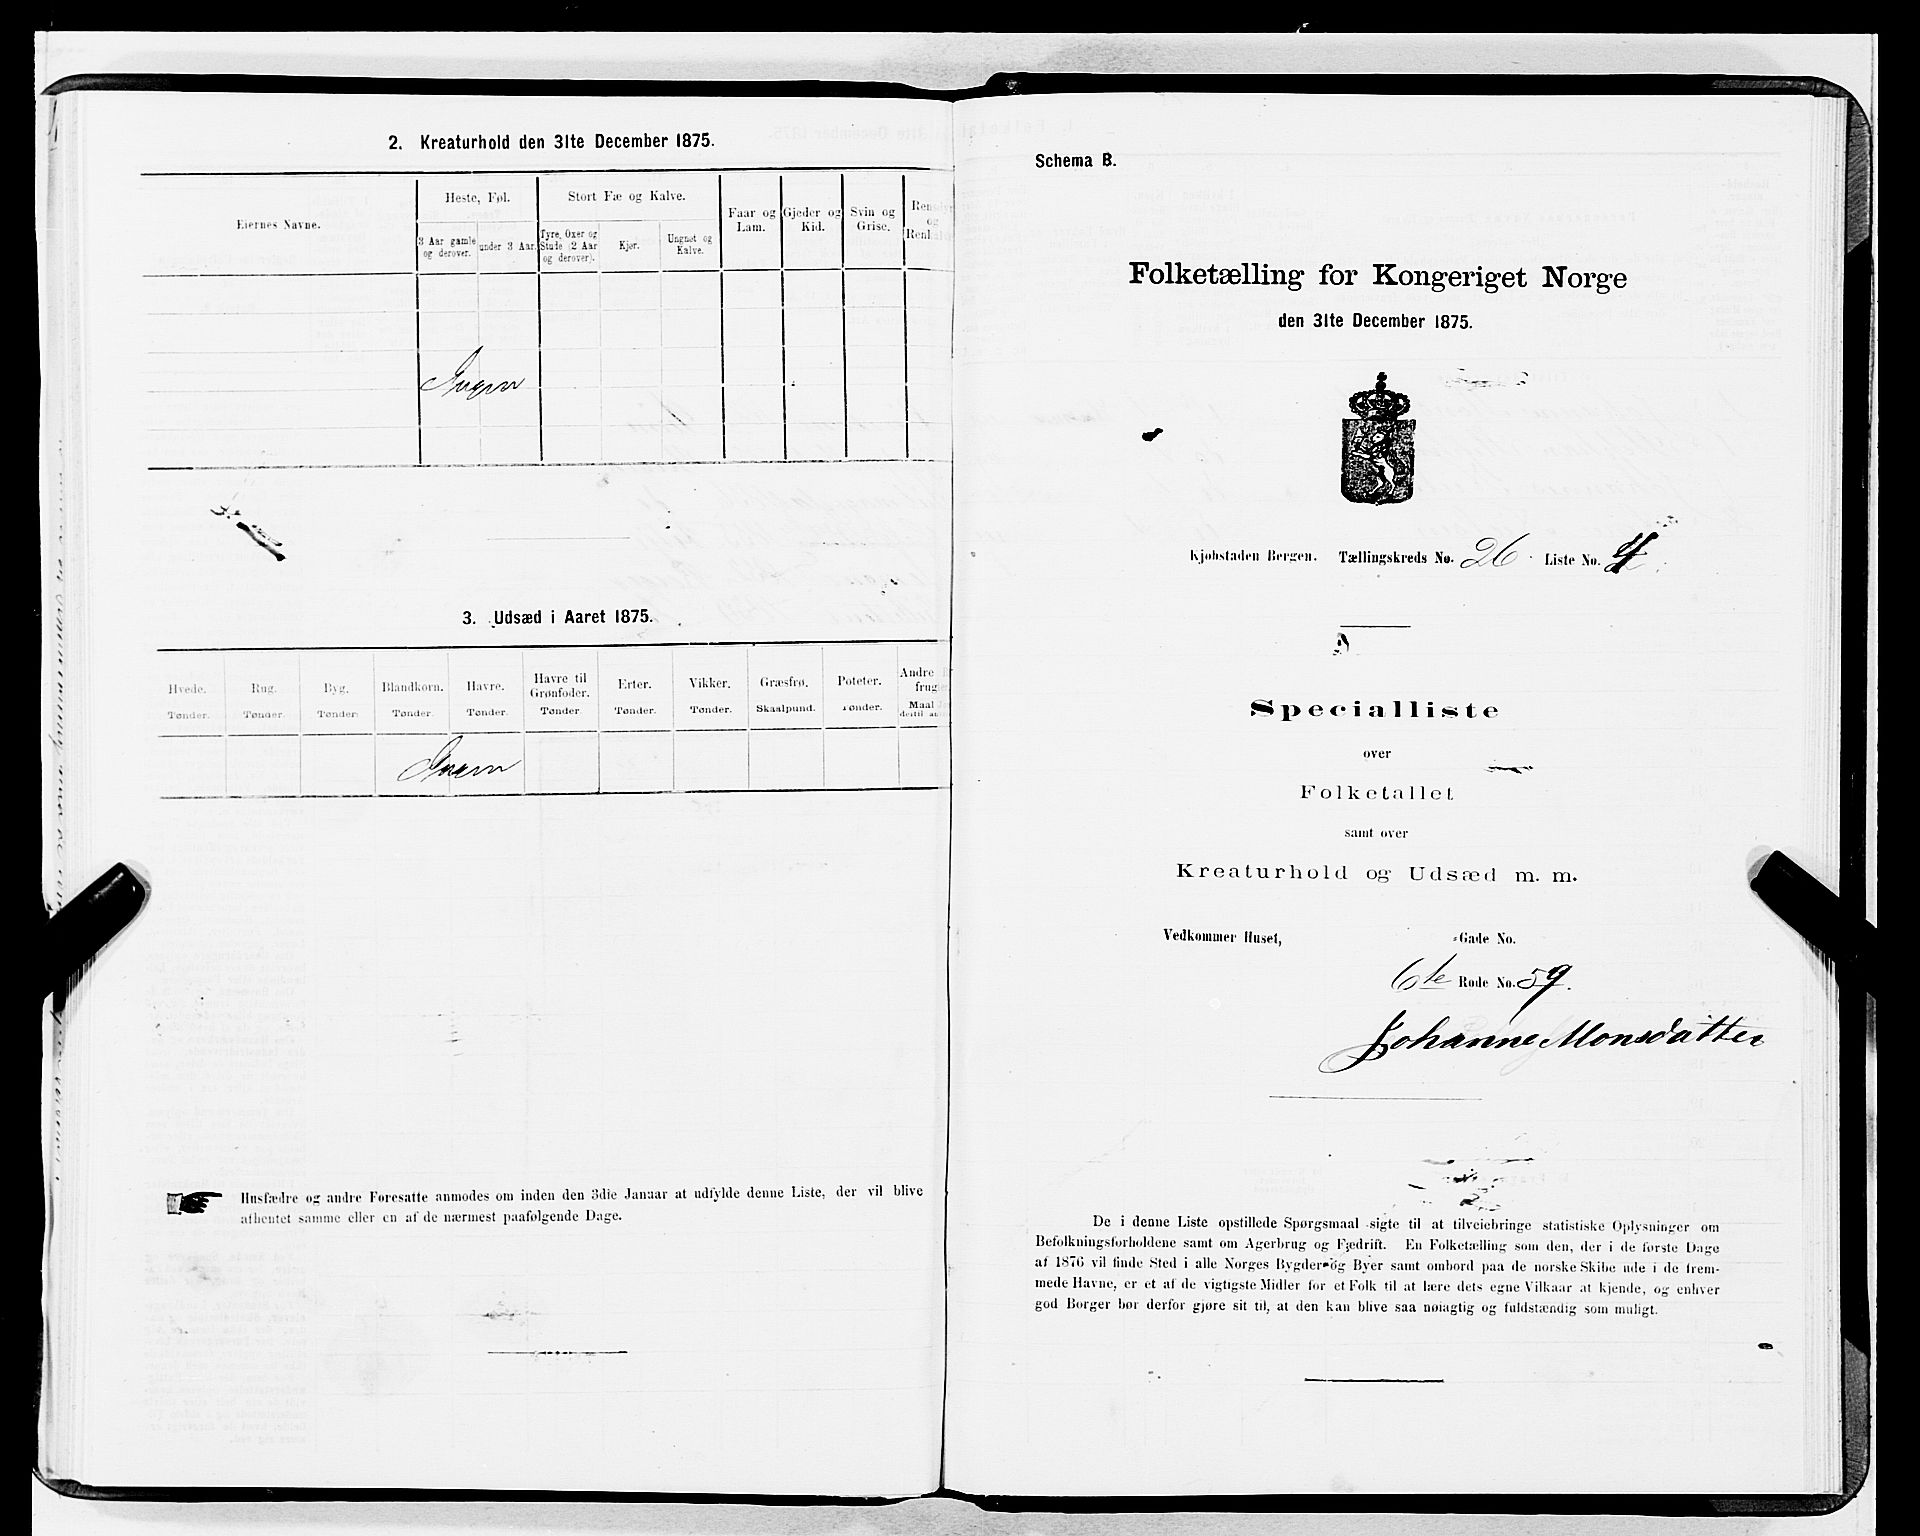 2. Kreaturhold den 31te December 1875.
Eiernes Navne.
Heste, Føl.
Stort Fæ og Kalve.
3 Aar gamle og derover.
under 3 Aar.
Tyre, Oxer og Stude (2 Aar og derover).
Kjør.
Ungnøt og Kalve.
Faar og Lam.
Gjeder og Kid.
Svin og Grise.
Ingen
3. Udsæd i Aaret 1875.
Hvede. Rug. Byg. Blandkorn. Havre. Havre til Grønfoder. Erter. Vikker. Græsfrø. Poteter. Andre
Tønder. Tønder. Tønder. Tønder. Tønder. Tønder. Tønder. Tønder. Skaalpund. Tønder. Maal
Ingen
Husfædre og andre Foresatte anmodes om inden den 3die Januar at udfylde denne Liste, der vil blive
afhentet samme eller en af de nærmest paafølgende Dage.
Schema B.
Folketælling for Kongeriget Norge
den 31te December 1875.
Kjøbstaden Bergen. Tællingskreds No. 26. Liste No. 4.
Specialliste
over
Folketallet
samt over
Kreaturhold og Udsæd m. m.
Vedkommer Huset, -Gade No.
6te Rode No. 59.
Johanne Monsdatter
De i denne Liste opstillede Spørgsmaal sigte til at tilveiebringe statistiske Oplysninger om
Befolkningsforholdene samt om Agerbrug og Fædrift. En Folketælling som den, der i de første Dage
af 1876 vil finde Sted i alle Norges Bygder og Byer samt ombord paa de norske Skibe ude i de frem-
mede Havne, er et af de vigtigste Midler for et Folk til at lære dets egne Vilkaar at kjende, og enhver
god Borger bør derfor gjøre sit til, at den kan blive saa nøiagtig og fuldstændig som muligt.